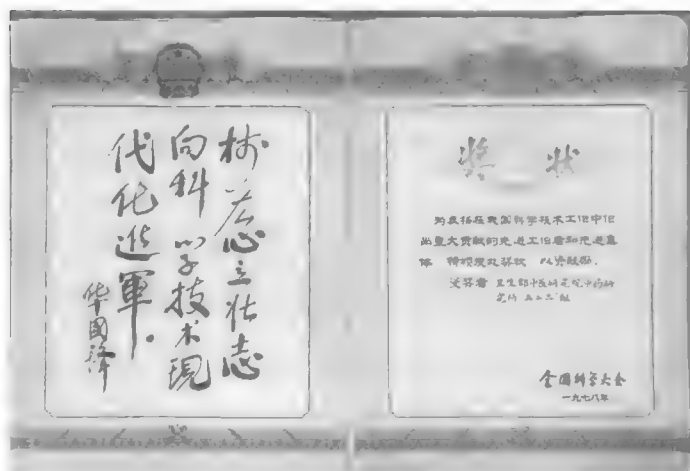 树雄心立壮志
向科学技术現
代化進軍。
华國锋
奖状
为表扬在我国科学技术工作中作
出重大贡献的先进工作者和先进集
体，特颁发此奖状，以资鼓励。
受奖者 卫生部中医研究院中药研
究所 五二三组
全国科学大会
一九七八年